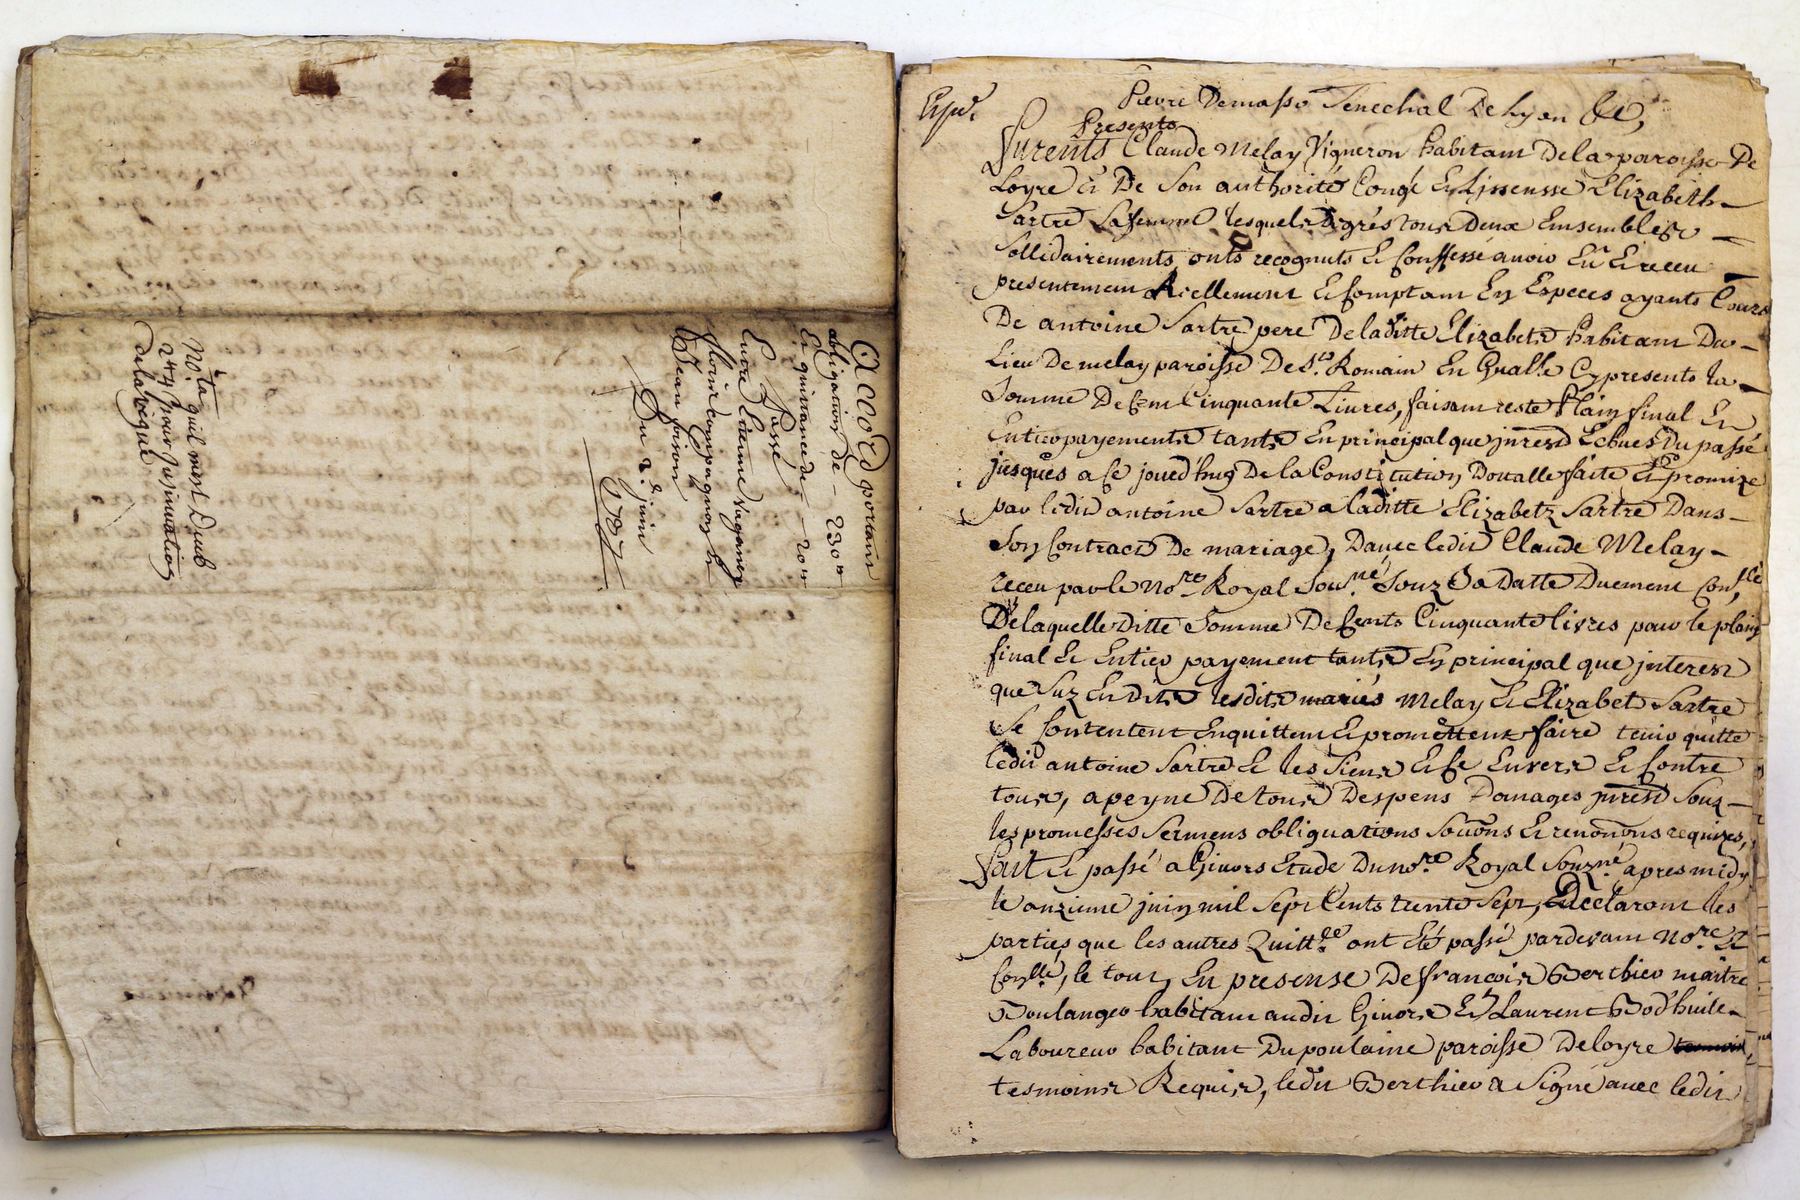 Accord portant
obligation de - 230 ₶
Et quittance de - 20 ₶
Passé
Entre Etienne Vaganay
fleurie Compagnon Et
Jean
Du 2e juin
1737
No.ta quil nest Dueub
244 pour Insinuation
delaveque
Expé.
Pierre Demasso Senechal De Lyon &c,
presents
Furents Claude Melay Vigneron habitant Dela paroisse De
Loyre & De Son authorité Congé Et Lissensse Elizabeth
Sartre Sa femme lesquels Degrés tous Deux Emsembles
Sollidairements onts recognuts Et Conffessé avoir Eu Et receu
presentement Reellement Et Comptant En Especes ayants Cours
De antoine Sartre pere De laditte Elizabets habitant Du
Lieu De melay paroisse De St. Romain En Gualle Cy presents la
Somme De Cent Cinquante Livres, faisant reste Plain final Et
Entier payements tants En principal que jnrest Echues Du passé
jusques a Ce jourd'huy De la Constitution Dotalle faite Et promize
par ledit antoine Sartre a laditte Elizabetz Sartre Dans
Son Contract De mariage, D'avec ledit Claude Melay
receu par le No.re Royal Sou.né Souz Sa Datte Duement Con.llé
De laquelle Ditte Somme De Cents Cinquante livres pour le plain
final Et Entier payement tants En principal que jnterest
que Suz En Dits lesdits mariés Melay Et Elizabet Sartre
Se Contentent Enquittent Et promettent faire tenir quitte
ledit antoine Sartre Et les Siens Et Ce Envers Et Contre
tous, a peyne De tous Despens Domages jnrest Souz
les promesses Sermens obliguations Soumons Et renonons requizes,
Fait Et passé a Givors Etude Du no.re Royal Souz.né apres midy
le onzieme juin mil Sept Cents trente Sept, Declarant les
parties que les autres Quitt.ce ont Eté passé pardevant No.re Et
Con.llé, le tout En presense De françois Berthier maître
Boulanger habitant audit Givors Et Laurent Bod'huile
Laboureur habitant Du poulaine paroisse De loyre
tesmoins Requis, ledit Berthier a Signé avec ledit